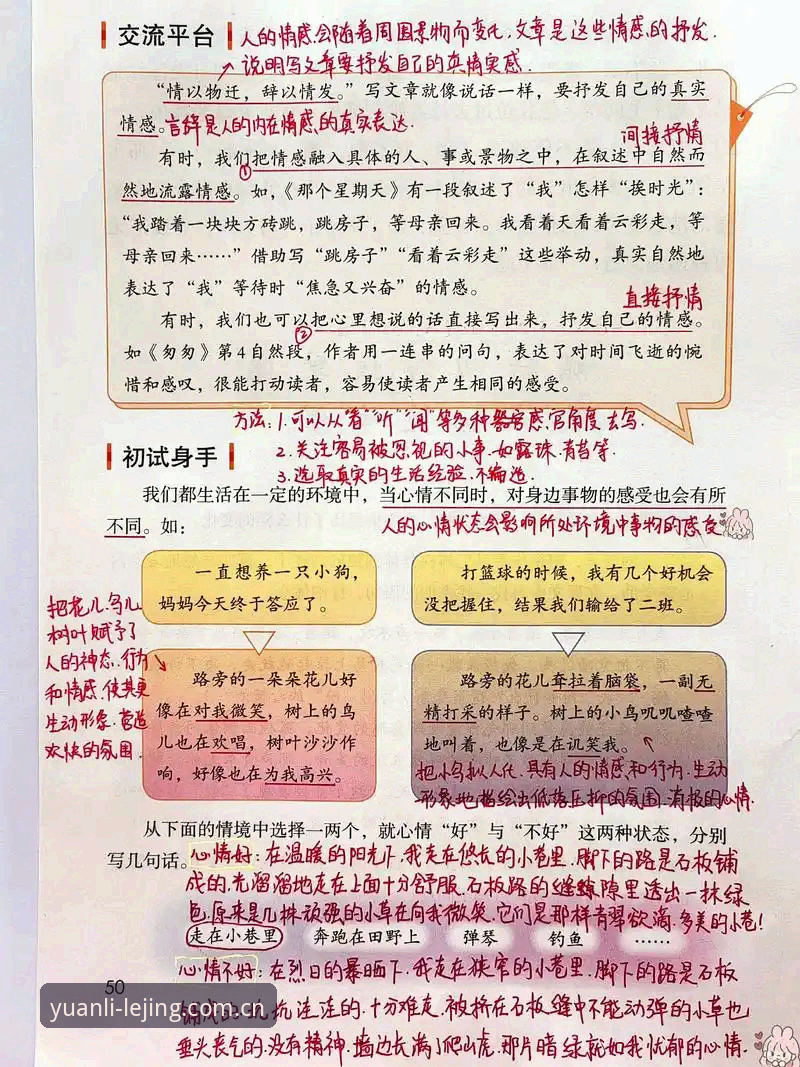 交流平台 人的情感会随着周围景物而变化,文章是这些情感的抒发.
说明写文章要抒发自己的真情实感.
“情以物迁,辞以情发。”写文章就像说话一样,要抒发自己的真实
情感。言辞是人的内在情感的真实表达.
间接抒情
有时,我们把情感融入具体的人、事或景物之中,在叙述中自然而
①
然地流露情感。如,《那个星期天》有一段叙述了“我”怎样“挨时光”:
“我踏着一块块方砖跳,跳房子,等母亲回来。我看着天看着云彩走,等
母亲回来……”借助写“跳房子”“看着云彩走”这些举动,真实自然地
表达了“我”等待时“焦急又兴奋”的情感。
直接抒情
有时,我们也可以把心里想说的话直接写出来,抒发自己的情感。
②
如《匆匆》第4自然段,作者用一连串的问句,表达了对时间飞逝的惋
惜和感叹,很能打动读者,容易使读者产生相同的感受。
方法:1.可以从“看”“听”“闻”等多种感官角度去写.
初试身手
2.关注容易被忽视的小事.如露珠.青苔等.
3.选取真实的生活经验.不编造.
我们都生活在一定的环境中,当心情不同时,对身边事物的感受也会有所
不同。如:
人的心情状态会影响所处环境中事物的感受
一直想养一只小狗,
妈妈今天终于答应了。
打篮球的时候,我有几个好机会
没把握住,结果我们输给了二班。
把花儿.鸟儿
树叶赋予了
人的神态.行为
和情感.使其更
生动形象.营造
欢快的氛围.
路旁的一朵朵花儿好
像在对我微笑,树上的鸟
儿也在欢唱,树叶沙沙作
响,好像也在为我高兴。
路旁的花儿耷拉着脑袋,一副无
精打采的样子。树上的小鸟叽叽喳喳
地叫着,也像是在讥笑我。
把小鸟拟人化.具有人的情感和行为.生动
形象地描绘出低落压抑的氛围.消极的心情.
从下面的情境中选择一两个,就心情“好”与“不好”这两种状态,分别
写几句话。心情好:在温暖的阳光下.我走在悠长的小巷里.脚下的路是石板铺
成的.光溜溜地走在上面十分舒服.石板路的缝隙里透出一抹绿
色.原来是几株顽强的小草在向我微笑.它们是那样青翠欲滴.多美的小巷!
走在小巷里 奔跑在田野上 弹琴 钓鱼 ……
心情不好:在烈日的暴晒下.我走在狭窄的小巷里.脚下的路是石板
50
铺成的.坑坑洼洼的.十分难走.被挤在石板缝中不能动弹的小草也
yuanli-lejing.com.cn
垂头丧气的.没有精神.墙边长满了爬山虎.那片暗绿就如我忧郁的心情.